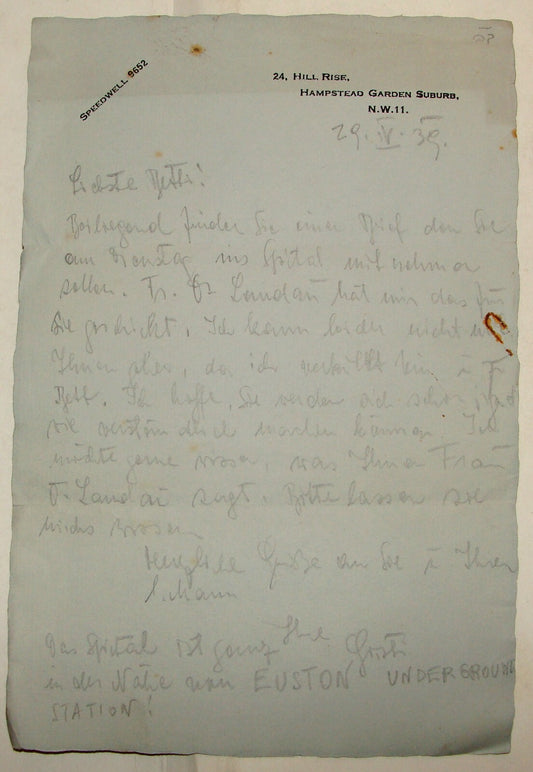 SPEEDWELL 9652
24, HILL RISE,
HAMPSTEAD GARDEN SUBURB,
N.W.11.
29. IV. 39.
Liebste Betti!
Beiliegend finden Sie einen Brief den Sie
am Dienstag ins Spital mitnehmen
sollen. Fr. Dr Landau hat mir das für
Sie geschickt. Ich kann leider nicht
Ihnen, da ich verkühlt bin u zu
Bett. Ich hoffe, Sie werden sich schon
verständlich machen können. Ich
möchte gerne wissen, was Ihnen Frau
D. Landau sagt. Bitte lassen Sie
wissen
Herzliche Grüße an Sie u Ihren
l. Mann
Ihre
Das Spital ist ganz
in der Nähe von EUSTON UNDERGROUND
STATION!